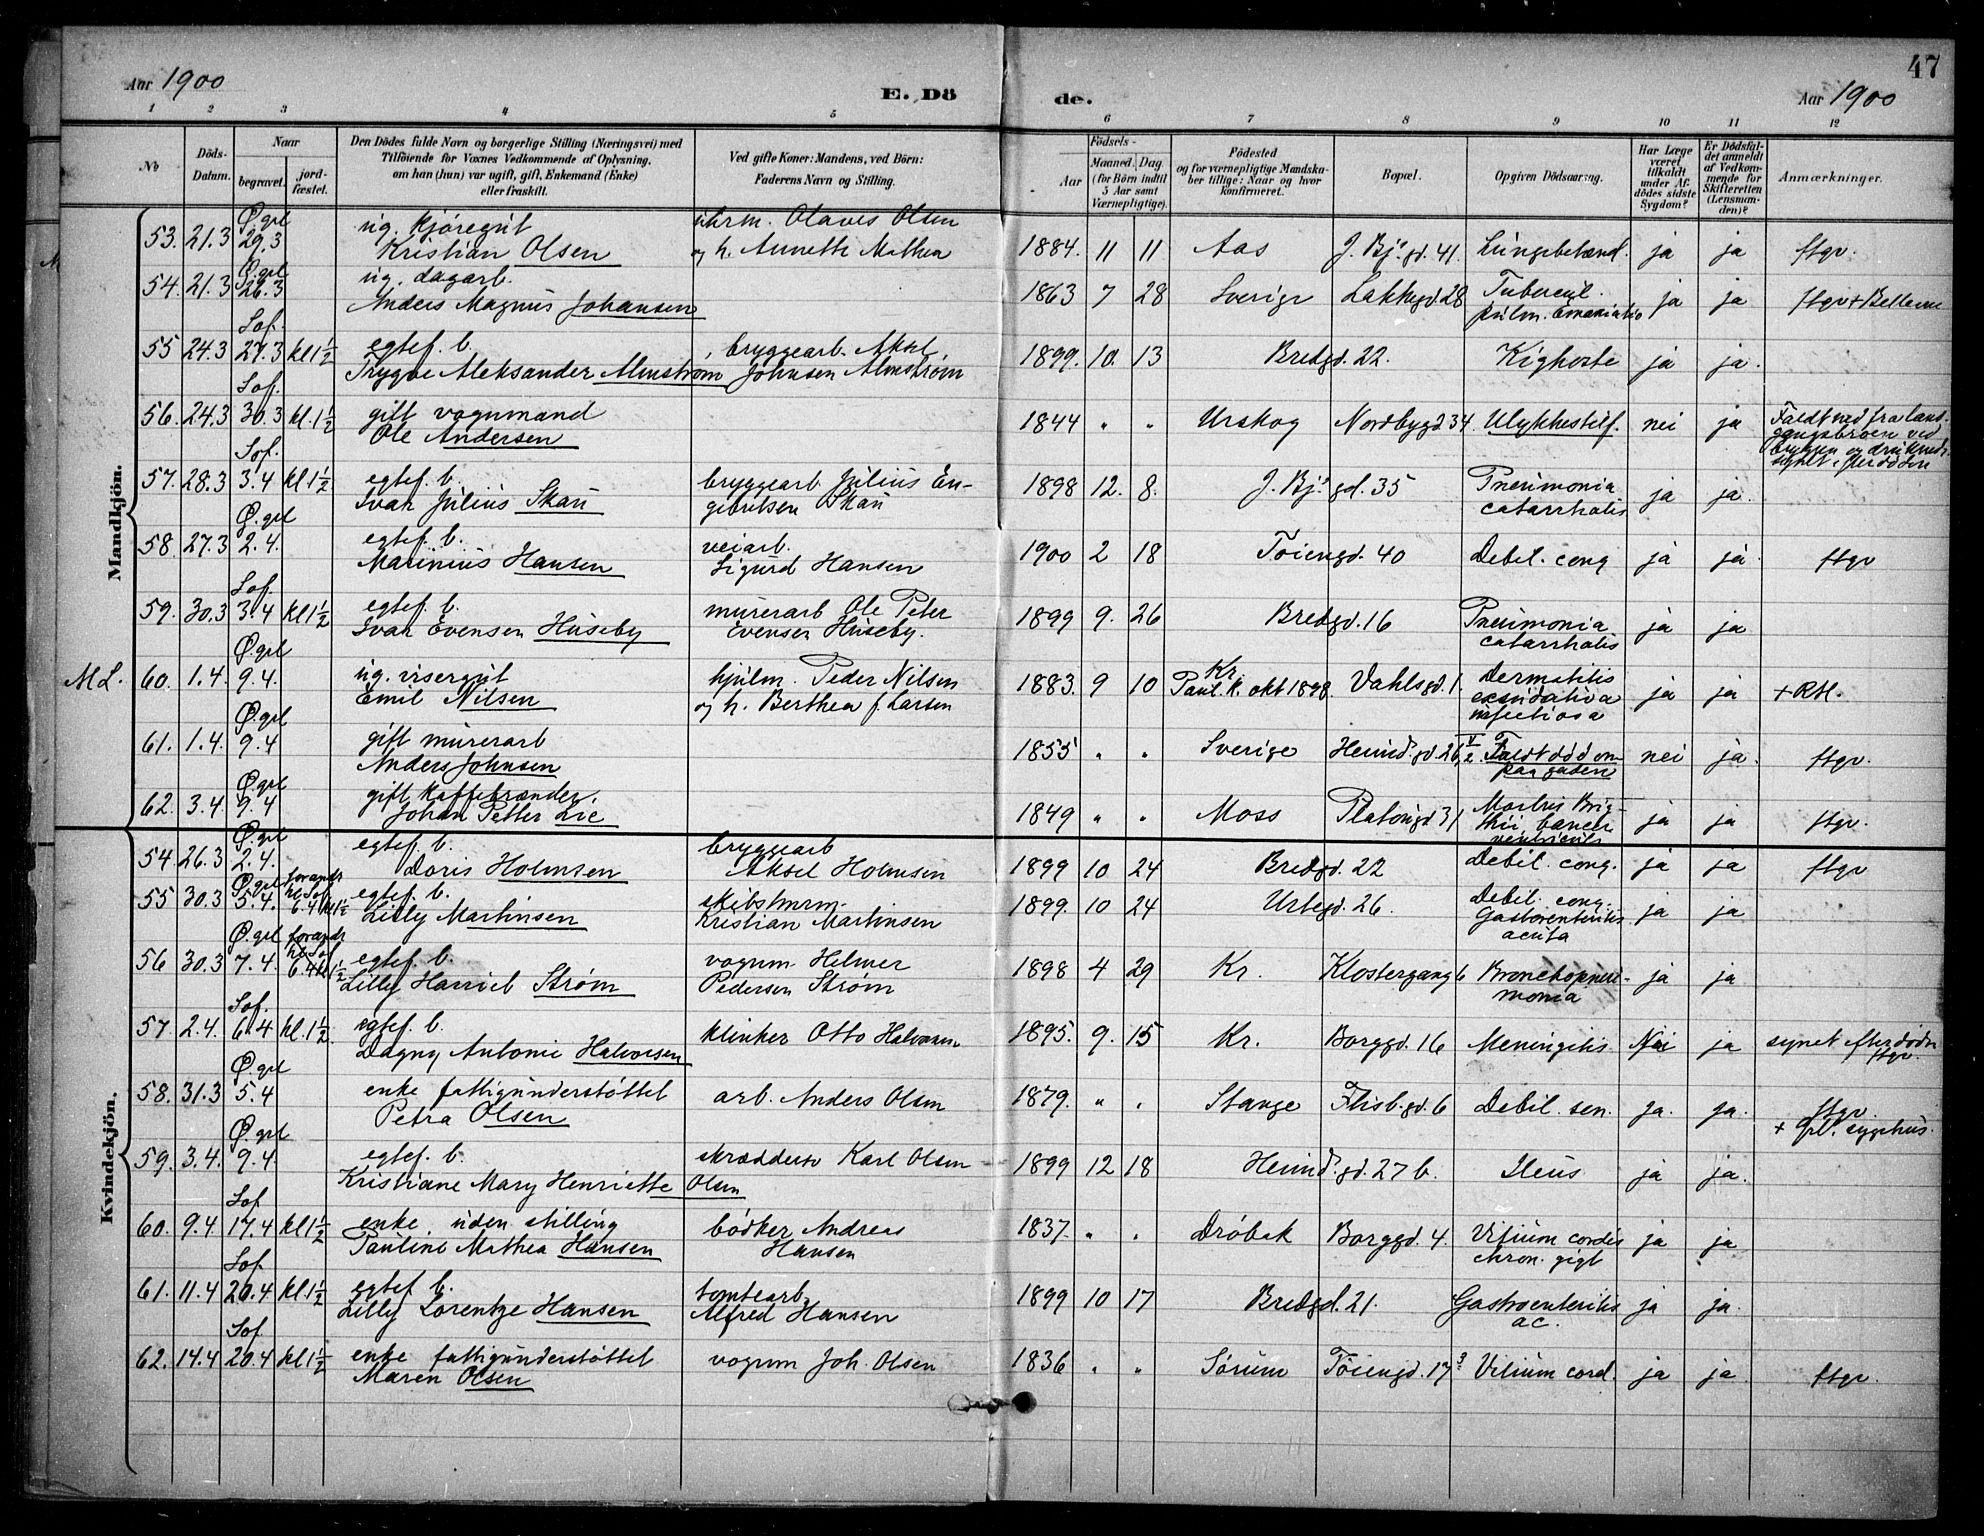 47
Aar 1900 E. Dö de. Aar 1900
1 2 3 4 5 6 7 8 9 10 11 12
No
Döds-Datum.
Naar
begravet.
jord-fæstet.
Den Dödes fulde Navn og borgerlige Stilling (Næringsvei) med
Tilföiende for Voxnes Vedkommende af Oplysning,
om han (hun) var ugift, gift, Enkemand (Enke)
eller fraskilt.
Ved gifte Koner: Mandens, ved Börn:
Faderens Navn og Stilling.
Födsels-
Aar
Maaned. Dag.
(for Börn indtil
5 Aar samt
Værnepligtige).
Födested
og for værnepligtige Mandska-
ber tillige: Naar og hvor
konfirmeret.
Bopæl.
Opgiven Dödsaarsag.
Har Læge
været
tilkaldt
under Af-
dödes sidste
Sygdom?
Er Dödsfal-
det anmeldt
af Vedkom-
mende for
Skifteretten
(Lensman-
den)?
Anmærkninger.
Mandkjön.
Ø.grl ug. kjøregut Olaves Olsen
53. 21.3 29.3 Kristian Olsen og h. Annette Mathea 1884. 11 11 Aas J. Bj. gd. 41. Lungebetænd. ja ja ftgv.
Ø.grl ug. dagarb.
54. 21.3 26.3 Anders Magnus Johansen 1863 7 28 Sverige Lakkegd. 28 Tubercul. pulm. ja ja ftgv
Sof. egtef. b. bryggearb. Aksel
55 24.3 27.3 kl 1½ Trygve Aleksander Almstrøm Johnsen Almstrøm 1899. 10. 13 Bredgd. 22. Kighoste ja ja.
Sof. gift vognmand
56. 24.3 30.3 kl. 1½ Ole Andersen 1844 " " Urskog Nordbygd 34 Ulykkestilf. nei ja Faldt ned fra land-
gangsbroen ved
bryggen og druknede
synet efter døden
Sof. egtef. b. bryggearb Julius En-
57. 28.3 3.4 kl 1½ Ivar Julius Skau gebretsen Skau 1898 12. 8. J. Bj. gd. 35 Pneumonia catarrhalis ja ja.
Ø.grl egtef. b. veiarb.
58. 27.3 2.4. Marinius Hansen Sigurd Hansen 1900 2 18 Tøiengd. 40 Debil. cong ja ja. ftgv
Sof. egtef. b. murerarb Ole Peter
59. 30.3 3.4 kl 1½ Ivar Evensen Huseby Evensen Huseby. 1899 9. 26 Bredgd. 16 Pneumonia catarrhalis ja ja
Ø.grl ug. visergut hjulm. Peder Nilsen
M L. 60. 1.4. 9.4. Emil Nilsen og h. Berthea f. Larsen 1883. 9 10 Kr. Paul. K. okt 1898. Vahlsgd. 1. Dermatitis exsudativa infectiosa ja ja + RH.
Ø.grl gift murerarb
61. 1.4. 9.4 Anders Johnsen 1855 " " Sverige Heimd. gd. 26, Faldt død om paa gaden nei ja. ftgv.
Ø.grl gift kaffebrænder.
62. 3.4. 9.4 Johan Petter Lie 1849 " " Moss Platougd 31 Morbus Brigthii, cancer ventriculi ja ja ftgv.
Kvindekjön.
Ø.grl egtef. b. bryggearb
54 26.3 2.4. Doris Holmsen Aksel Holmsen 1899 10 24 Bredgd. 22 Debil. cong. ja ja ftgv
Ø.grl egtef. b. skibstmrm.
55 30.3 5.4. forandr til Sof. 6.4 kl 1½ Lilly Martinsen Kristian Martinsen 1899. 10 24 Urtegd. 26. Debil. cong. Gastroenteritis acuta ja ja
Ø.grl egtef. b. vogum. Helmer
56 30.3 7.4. forandr til Sof. 6.4 kl 1½ Lilly Harriet Strøm Pedersen Strøm 1898 4 29 Kr. Klostergang 6 Bronchopneu-
monia ja ja
Sof. egtef. b.
57 2.4. 6.4 kl. 1½ Dagny Antonie Halvorsen klinker Otto Halvorsen 1895. 9. 15 Kr. Borggd. 16 Meningitis. Nei ja synet efter døden ftgv.
Ø.grl enke fattigunderstøttet
58. 31.3 5.4 Petra Olsen arb. Anders Olsen 1879. " " Stange Flisb. gd. 6 Debil. sen. ja. ja. ftgv. + Grl. sygehus.
Ø.grl egtef. b.
59. 3.4. 9.4 Kristiane Mary Henriette Olsen skrædder Karl Olsen 1899 12 18 Heimd. gd. 27 b. Ileus ja ja.
Sof. enke, uden stilling bødker Andreas
60. 9.4. 17.4 kl 1½ Pauline Mathea Hansen Hansen 1837. " " Drøbak Borggd. 4. Vitium cordis chron. gigt ja ja
Sof. egtef. b. tomtearb.
61. 11.4 20.4. kl 1½ Lilly Lorentze Hansen Alfred Hansen 1899 10 17 Bredgd. 21. Gastroenteritis ac. ja ja.
Sof. enke fattigunderstøttet
62. 14.4 20.4 kl 1½ Maren Olsen vogum Joh. Olsen 1836 " " Sørum Tøiengd. 17 Vitium cord. ja ja ftgv.